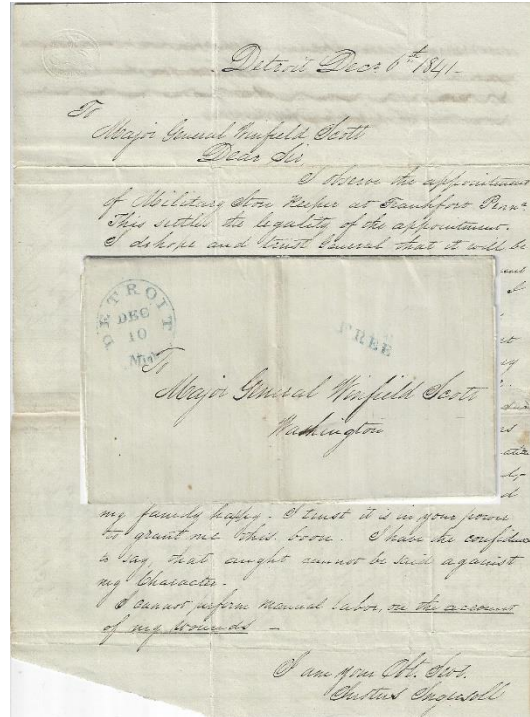 Detroit Decr 6th 1841.
To
Major General Winfield Scott
Dear Sir
I observe the appointment
of Military Store Keeper at Frankford Penna
This settles the legality of the appointment.
I do hope and trust General that it will be
I
DETROIT
DEC
10
Mich
FREE
To
Major General Winfield Scott
Washington
my family happy. I trust it is in your power
to grant me this boon. I have the confidence
to say, that aught cannot be said against
my Character.
I cannot perform manual labor, on the account
of my wounds —
I am your Obt. Servt.
Justus Ingersoll